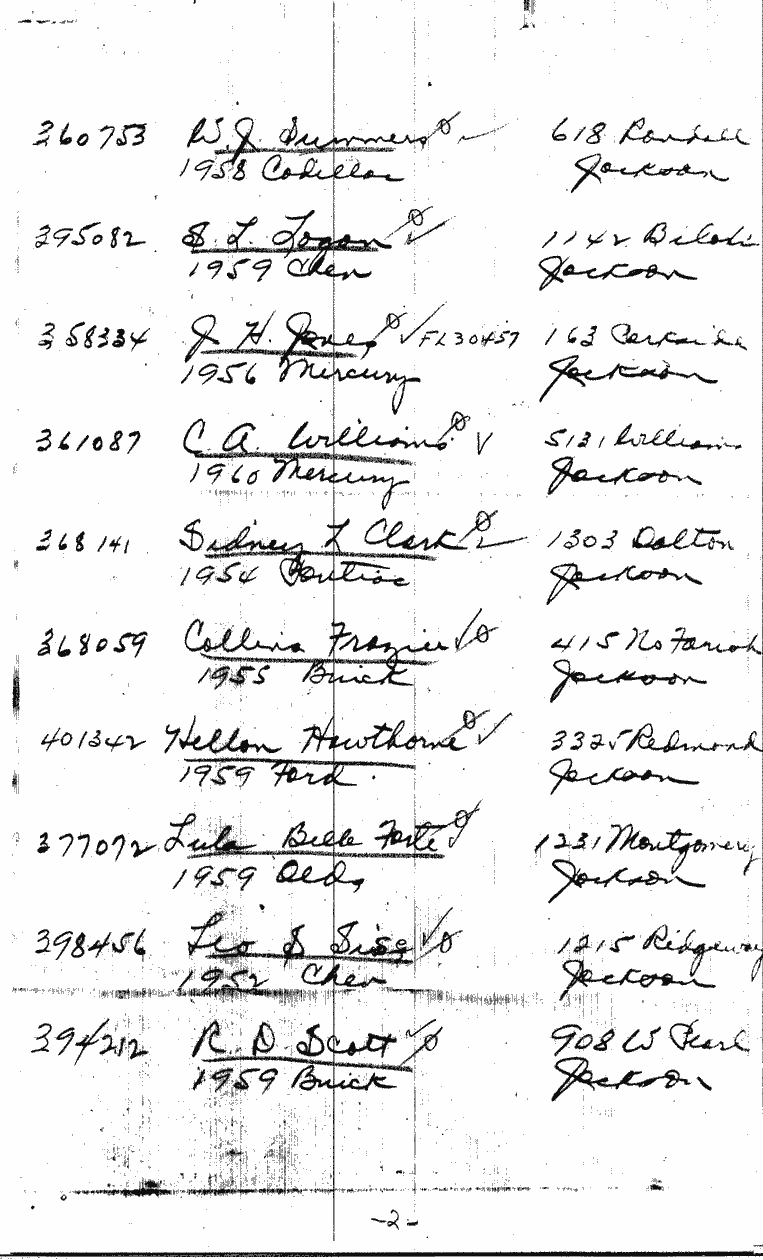 360753 W. J. Summers 618 Randall
1958 Cadillac Jackson
395082 S. L. Logan 1142 Biloxi
1959 Chev Jackson
358334 J. H. Jones ✓ FL30457 163 Parkside
1956 Mercury Jackson
361087 C. A. Williams ✓ 5131 William
1960 Mercury Jackson
368141 Sidney L Clark 1303 Dalton
1954 Pontiac Jackson
368059 Collins Frazier ✓ 415 No Farish
1955 Buick Jackson
401342 Hellon Hawthorne ✓ 3325 Redmond
1959 Ford Jackson
377072 Lula Belle Forte ✓ 1231 Montgomery
1959 Olds Jackson
398456 Leo S ✓ 1215 Ridgeway
1952 Chev Jackson
394212 R. D. Scott ✓ 908 W Pearl
1959 Buick Jackson
-2-